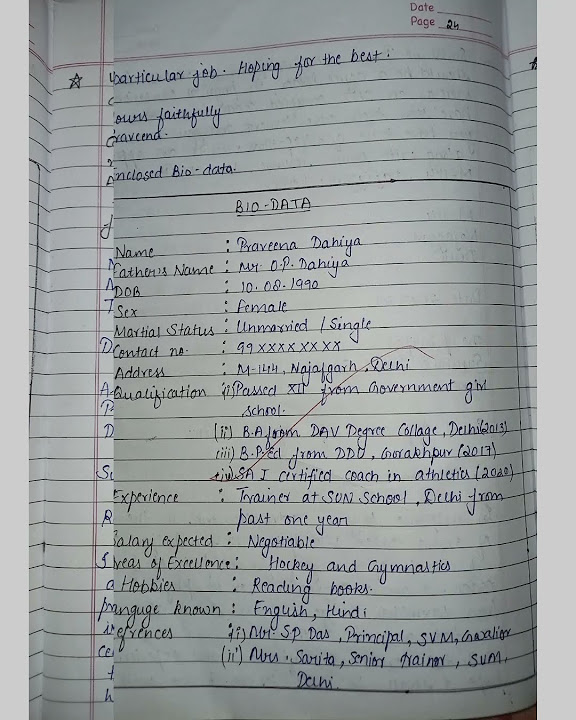 Date
Page 24
particular job. Hoping for the best.
ours faithfully
raveena.
nclosed Bio-data.
BIO-DATA
Name : Praveena Dahiya
Father's Name : Mr. O.P. Dahiya
DOB : 10.08.1990
Sex : Female
Martial Status : Unmarried / Single
Contact no. : 99 XXXXXXXX
Address : M-144, Najafgarh, Delhi
Qualification (i) Passed XII from Government girl
school.
(ii) B.A from DAV Degree Collage, Delhi (2013)
(iii) B.P.ed from DDU, Gorakhpur (2017)
(iv) SAI certified coach in athletics (2020)
Experience : Trainer at SUN School, Delhi from
past one year
Salary expected : Negotiable
Areas of Excellence : Hockey and Gymnastics
Hobbies : Reading books.
anguge known : English, Hindi
efrences (i) Mr. SP Das, Principal, SVM, Gwalior
(ii) Mrs. Sarita, Senior trainor, SVM,
Delhi